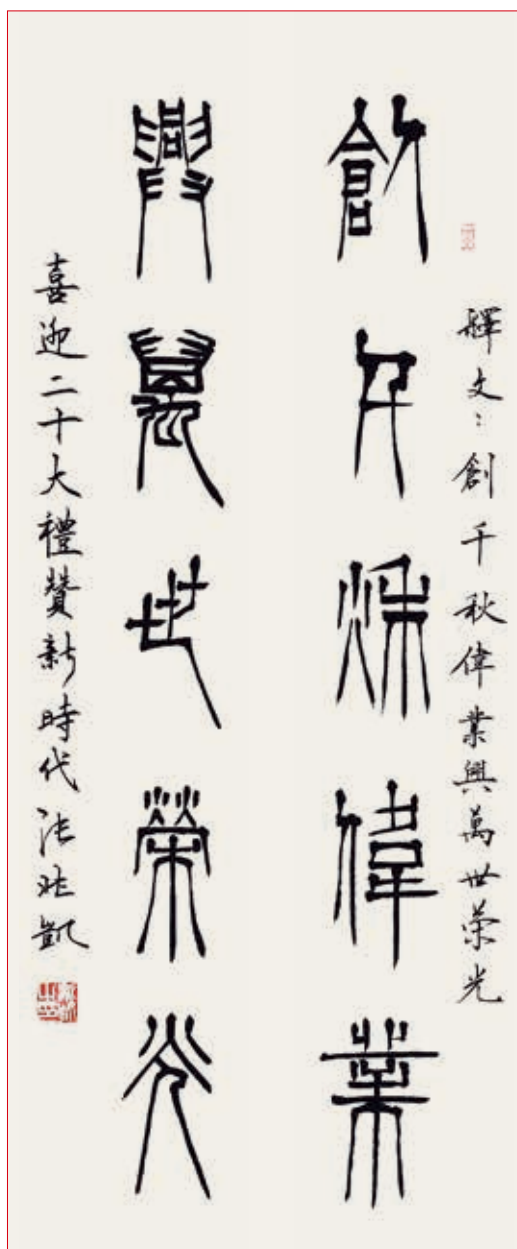 釋文：創千秋偉業興萬世榮光
創千秋偉業
興萬世榮光
喜迎二十大禮贊新時代